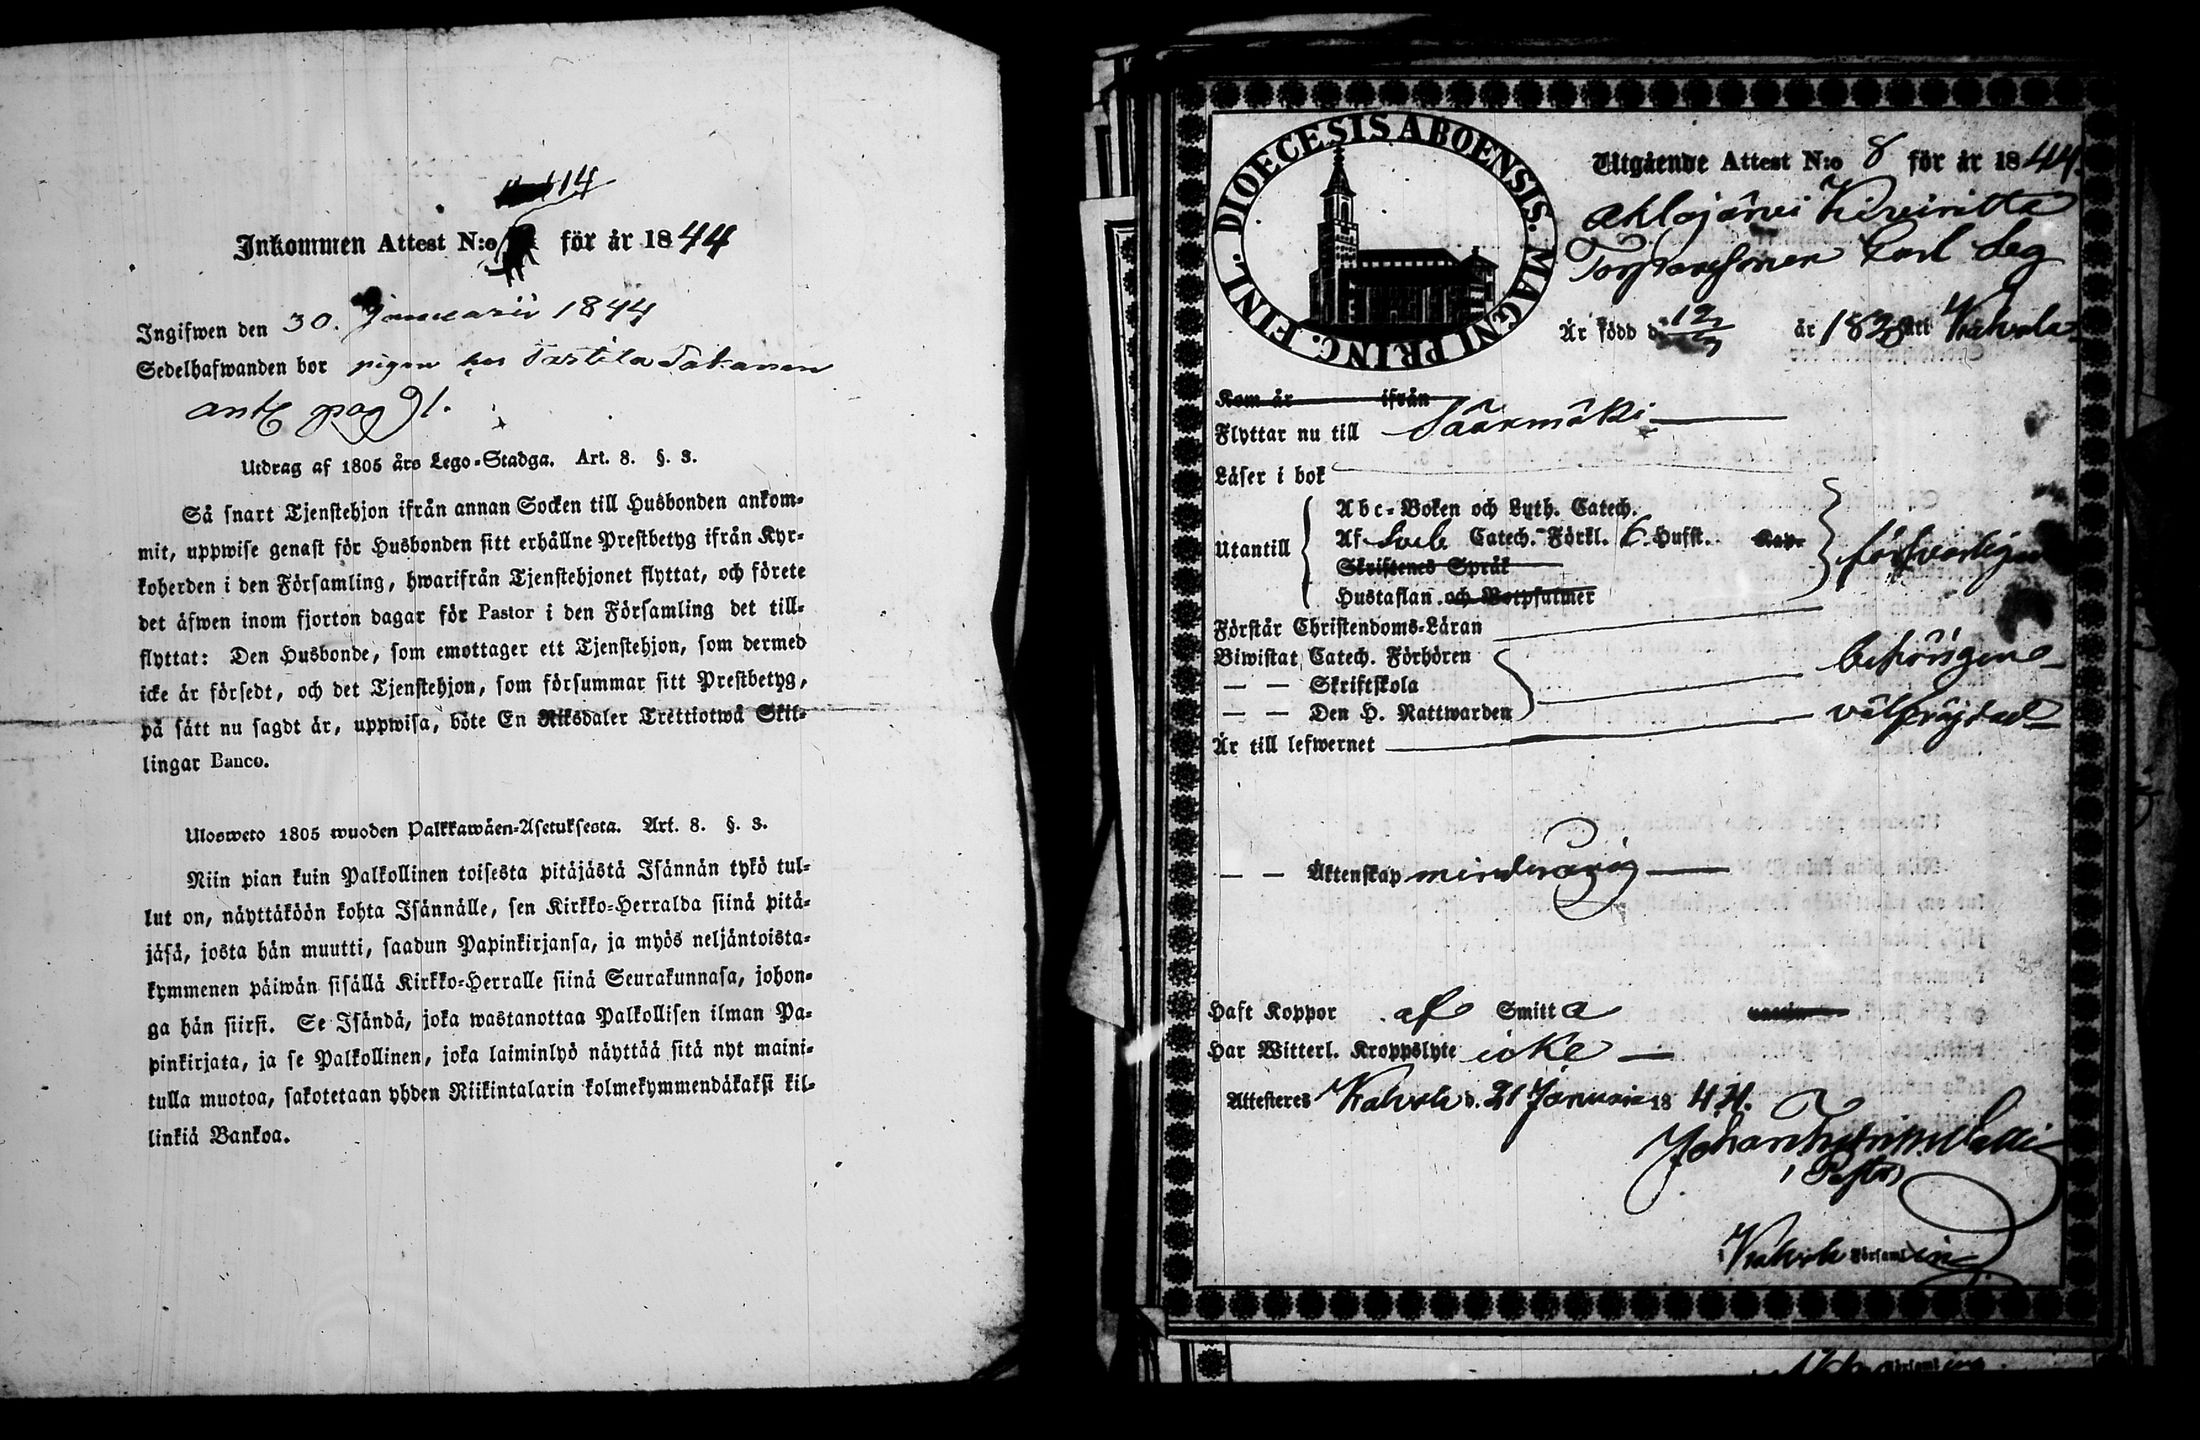 14
Inkommen Attest N:o för år 1844
Ingifwen den 30. Januarii 1844
Sedelhafwanden bor pigan hos Tastila
ant pag 91.
Utdrag af 1805 års Lego-Stadga. Art. 8. §. 3.
Så snart Tjenstehjon ifrån annan Socken till Husbonden ankom-
mit, uppwise genast för Husbonden sitt erhållne Prestbetyg ifrån Kyr-
koherden i den Församling, hwarifrån Tjenstehjonet flyttat, och förete
det äfwen inom fjorton dagar för Pastor i den Församling det till-
flyttat: Den Husbonde, som emottager ett Tjenstehjon, som dermed
icke är försedt, och det Tjenstehjon, som försummar sitt Prestbetyg,
på sätt nu sagdt är, uppwisa, böte En Riksdaler Trettiotwå Skil-
lingar Banco.
Ulosweto 1805 wuoden Palkkawäen-Asetuksesta. Art. 8. §. 3.
Niin pian kuin Palkollinen toisesta pitäjästä Isännän tykö tul-
lut on, näyttäköön kohta Isännälle, sen Kirkko-Herralda siinä pitä-
jäsä, josta hän muutti, saadun Papinkirjansa, ja myös neljäntoista-
kymmenen päiwän sisällä Kirkko-Herralle siinä Seurakunnasa, johon-
ga hän siirsi. Se Isändä, joka wastanottaa Palkollisen ilman Pa-
pinkirjata, ja se Palkollinen, joka laiminlyö näyttää sitä nyt maini-
tulla muotoa, sakotetaan yhden Riikintalarin kolmekymmendäkaksi kil-
linkiä Bankoa.
DIOECESIS ABOENSIS. MAGNI PRINC. FINL.
Utgående Attest N:o 8 för år 1844.
Ahlajärvi
Torparesonen Carl Seg
Är född d. 12 år 1828 att Kalvola
Kom år ifrån
Flyttar nu till Säärmäki
Läser i bok
Utantill
Abc-Boken och Luth. Catech.
Af Sveb Catech. Förkl. Hufst. Kap.
Skriftenes Språk
Hustaflan och Botpsalmer
försvarligen
Förstår Christendoms-Läran
Biwistat Catech. Förhören
— — Skriftskola
— — Den H. Nattwarden
behörigen
Är till lefwernet välfrejdad
— — Äktenskap minderårig
Haft Koppor af Smitta
Har Witterl. Kroppslyte icke
Attesteras Kalvola d. 21 Januarii 1844.
Johan
i Kalvola Församling